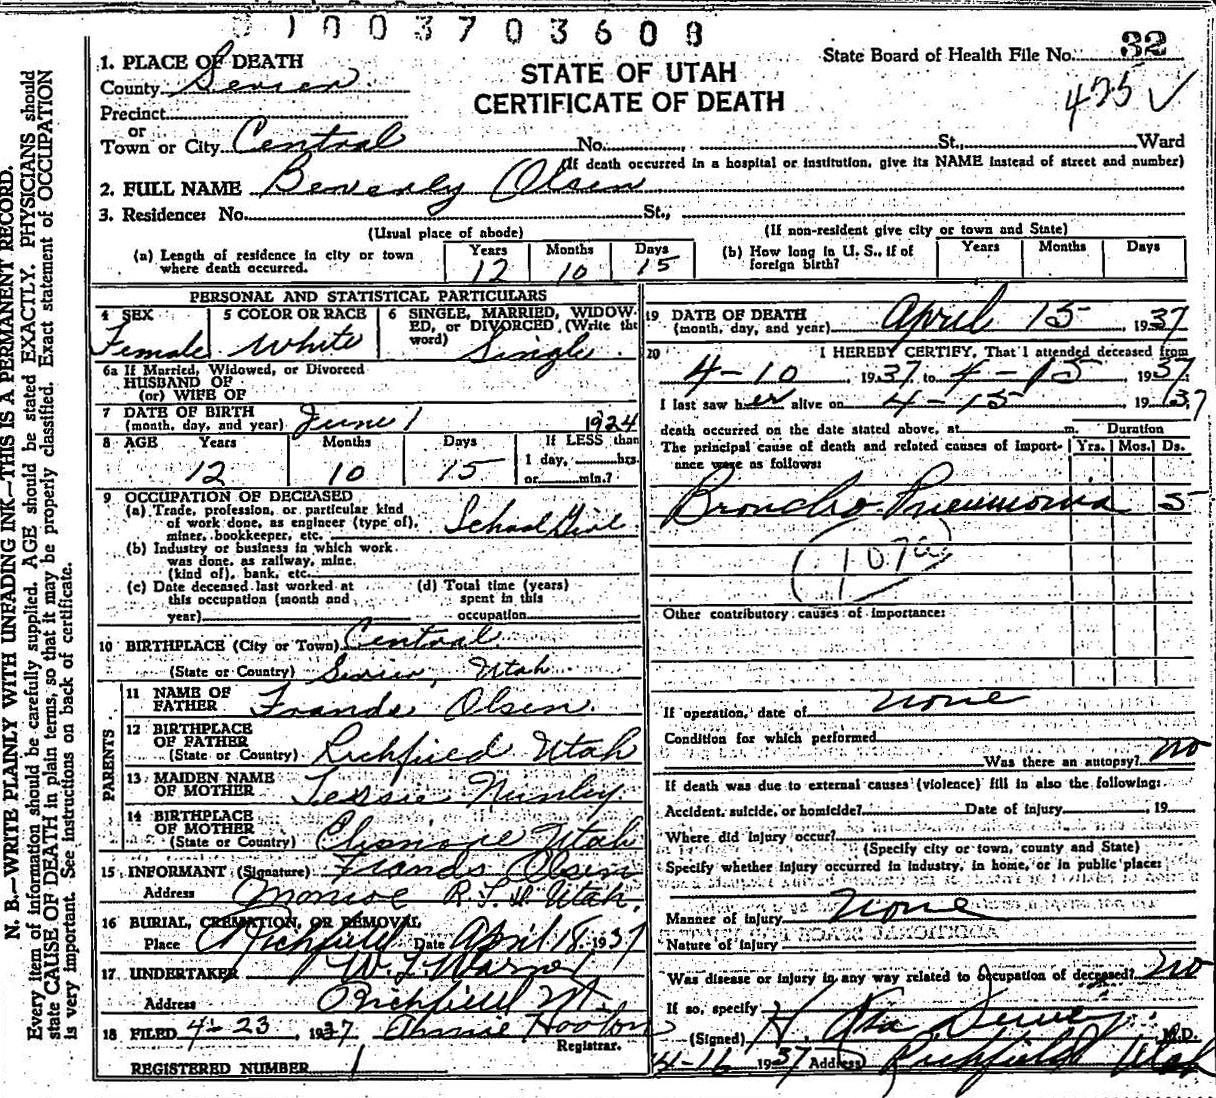 01003703608
State Board of Health File No. 32
425 ✓
STATE OF UTAH
CERTIFICATE OF DEATH
1. PLACE OF DEATH
County Sevier
Precinct
or
Town or City Central No. St., Ward
(If death occurred in a hospital or institution, give its NAME instead of street and number)
2. FULL NAME Beverly Olsen
3. Residence: No. St.,
(Usual place of abode) (If non-resident give city or town and State)
(a) Length of residence in city or town where death occurred. Years 12 Months 10 Days 15
(b) How long in U. S., if of foreign birth? Years Months Days
PERSONAL AND STATISTICAL PARTICULARS
4 SEX Female
5 COLOR OR RACE White
6 SINGLE, MARRIED, WIDOWED, or DIVORCED (Write the word) Single
6a If Married, Widowed, or Divorced
HUSBAND OF
(or) WIFE OF
7 DATE OF BIRTH
(month, day, and year) June 1 1924
8 AGE Years 12 Months 10 Days 15 If LESS than 1 day, hrs. or min.?
9 OCCUPATION OF DECEASED
(a) Trade, profession, or particular kind
of work done, as engineer (type of),
miner, bookkeeper, etc. School Girl
(b) Industry or business in which work
was done, as railway, mine,
(kind of), bank, etc.
(c) Date deceased last worked at
this occupation (month and
year)
(d) Total time (years)
spent in this
occupation
10 BIRTHPLACE (City or Town) Central
(State or Country) Sevier, Utah
PARENTS
11 NAME OF
FATHER Frands Olsen
12 BIRTHPLACE
OF FATHER
(State or Country) Richfield Utah
13 MAIDEN NAME
OF MOTHER Tessie Nunley
14 BIRTHPLACE
OF MOTHER
(State or Country) Utah
15 INFORMANT (Signature) Frands Olsen
Address Monroe R.F.D. Utah.
16 BURIAL, CREMATION, OR REMOVAL
Place Richfield Date April 18 1937
17 UNDERTAKER
Address Richfield Ut.
18 FILED 4-23 1937
Registrar.
REGISTERED NUMBER 1
19 DATE OF DEATH
(month, day, and year) April 15 1937
20 I HEREBY CERTIFY, That I attended deceased from
4-10, 1937 to 4-15 1937
I last saw her alive on 4-15 1937
death occurred on the date stated above, at m. Duration
The principal cause of death and related causes of importance were as follows: Yrs. Mos. Ds.
Broncho Pneumonia 5
107a
Other contributory causes of importance:
If operation, date of none
Condition for which performed
Was there an autopsy? no
If death was due to external causes (violence) fill in also the following:
Accident, suicide, or homicide? Date of injury 19
Where did injury occur?
(Specify city or town, county and State)
Specify whether injury occurred in industry, in home, or in public place:
Manner of injury none
Nature of injury
Was disease or injury in any way related to occupation of deceased? no
If so, specify
(Signed) M.D.
4-16 1937 Address Richfield Utah
N. B.—WRITE PLAINLY WITH UNFADING INK—THIS IS A PERMANENT RECORD.
Every item of information should be carefully supplied. AGE should be stated EXACTLY. PHYSICIANS should
state CAUSE OF DEATH in plain terms, so that it may be properly classified. Exact statement of OCCUPATION
is very important. See instructions on back of certificate.